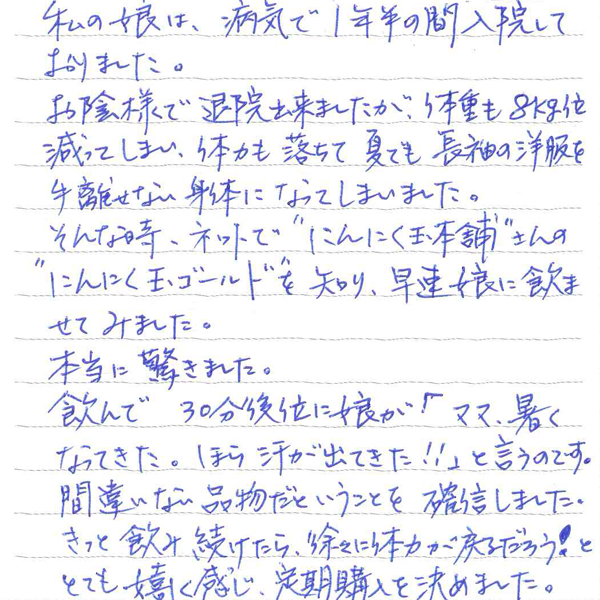 私の娘は、病気で1年半の間入院して
おりました。
お陰様で退院出来ましたが、体重も8kg位
減ってしまい、体力も落ちて夏でも長袖の洋服を
手離せない身体になってしまいました。
そんな時、ネットで"にんにく玉本舗"さんの
"にんにく玉ゴールド"を知り、早速娘に飲ま
せてみました。
本当に驚きました。
飲んで30分後位に娘が「ママ、暑く
なってきた。ほら汗が出てきた!!」と言うのです。
間違いない品物だということを確信しました。
きっと飲み続けたら、徐々に体力が戻るだろう!と
とても嬉しく感じ、定期購入を決めました。